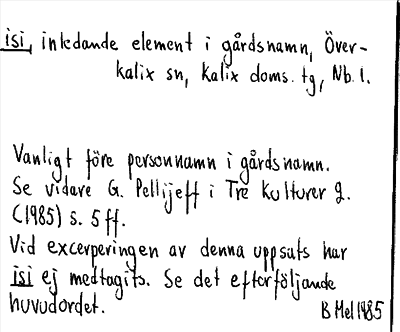 isi, inledande element i gårdsnamn, Över-
kalix sn, Kalix doms. tg, Nb. l.
Vanligt före personnamn i gårdsnamn.
Se vidare G. Pellijeff i Tre Kulturer 2.
(1985) s. 5 ff.
Vid excerperingen av denna uppsats har
isi ej medtagits. Se det efterföljande
huvudordet.
B Mel 1985